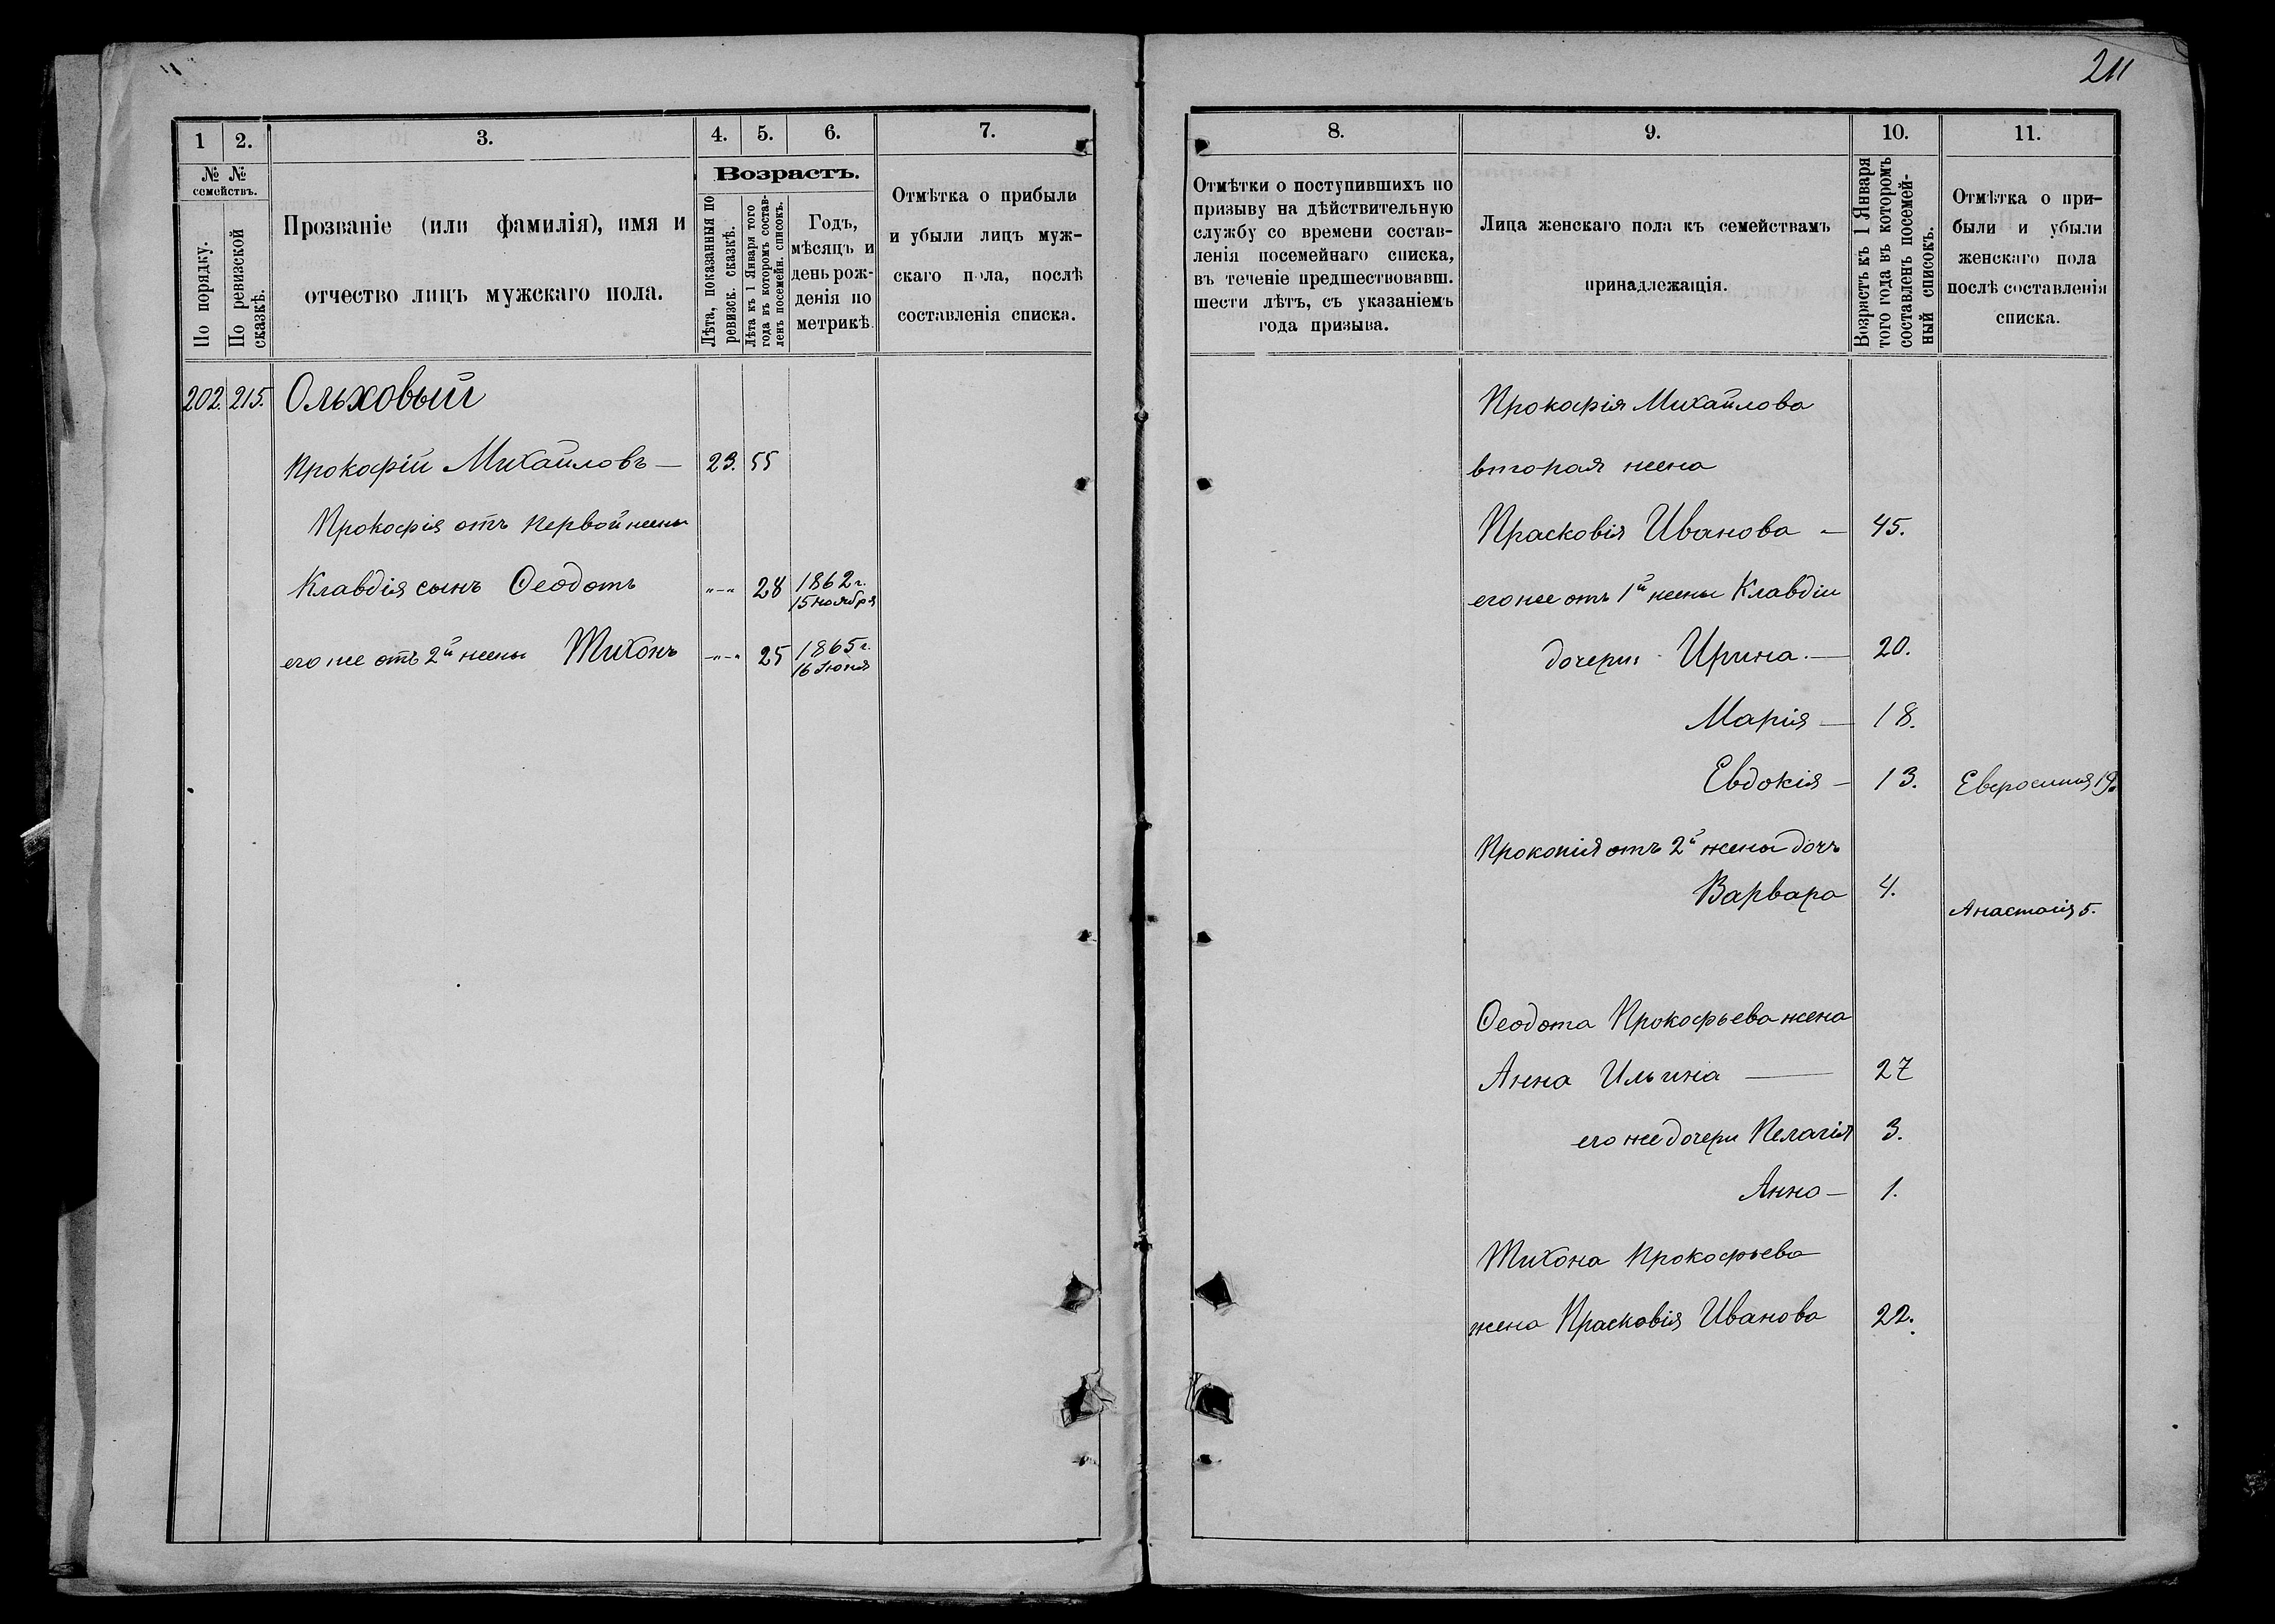 211
1 2. 3. 4. 5. 6. 7.
№ № семействъ.
По порядку.
По ревизской сказкѣ.
Прозваніе (или фамилія), имя и
отчество лицъ мужскаго пола.
Возрастъ.
Лѣта, показанныя по
ревизск. сказкѣ.
Лѣта къ 1 Января того
года въ которомъ состав-
ленъ посемейн. списокъ.
Годъ,
мѣсяцъ и
день рож-
денія по
метрикѣ
Отмѣтка о прибыли
и убыли лицъ муж-
скаго пола, послѣ
составленія списка.
202. 215. Ольховый
Прокофій Михайловъ — 23. 55
Прокофія отъ первой жены
Клавдія сынъ Ѳеодотъ "–" 28 1862 г.
15 ноября
его же отъ 2й жены Тихонъ "–" 25 1865 г.
16 Іюня
8. 9. 10. 11.
Отмѣтки о поступившихъ по
призыву на дѣйствительную
службу со времени состав-
ленія посемейнаго списка,
въ теченіе предшествовавш.
шести лѣтъ, съ указаніемъ
года призыва.
Лица женскаго пола къ семействамъ
принадлежащія.
Возрастъ къ 1 Января
того года въ которомъ
составленъ посемей-
ный списокъ.
Отмѣтка о при-
были и убыли
женскаго пола
послѣ составленія
списка.
Прокофія Михайлова
вторая жена
Прасковія Иванова — 45.
его же отъ 1й жены Клавдіи
дочери Ирина. — 20.
Марія — 18.
Евдокія — 13. 
Прокопія отъ 2й жены дочь
Варвара 4.
Анастасія 5.
Ѳеодота Прокофьева жена
Анна Ильина — 27
его же дочери Пелагія 3.
Анна — 1.
Тихона Прокофьева
жена Прасковія Иванова 22.